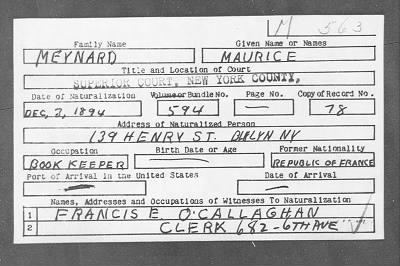 M 563
Family Name Given Name or Names
MEYNARD MAURICE
Title and Location of Court
SUPERIOR COURT, NEW YORK COUNTY,
Date of Naturalization Volume or Bundle No. Page No. Copy of Record No.
DEC, 3, 1894 594 — 78
Address of Naturalized Person
139 HENRY ST. BKLYN NY
Occupation Birth Date or Age Former Nationality
BOOK KEEPER — REPUBLIC OF FRANCE
Port of Arrival in the United States Date of Arrival
— —
Names, Addresses and Occupations of Witnesses To Naturalization
1 FRANCIS E. O'CALLAGHAN
2 CLERK 682-6TH AVE "